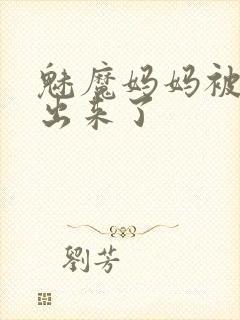 魅魔妈妈被
出来了
劉芳